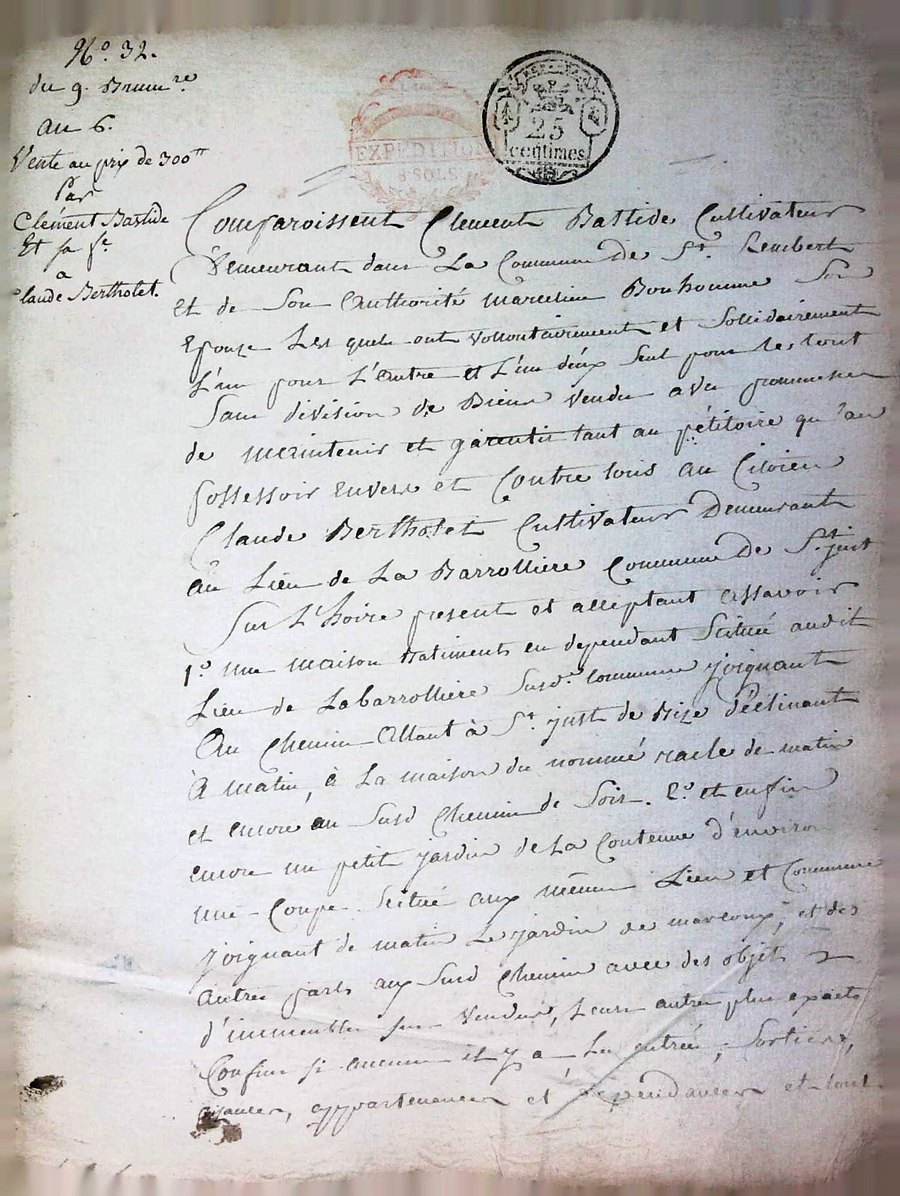 No. 32.
du 9. Brumre
an 6.
Vente au prix de 300tt
Par
Clément Bastide
Et sa fe
a
Claude Bertholet.
EXPEDITION
8 SOLS
25
centimes
Comparoissent Clement Battide Cultivateur
Demeurant dans La Commune De St. Rembert
et de Son Authorité marceline Bonhomme Son
Epouze Les quels ont vollontairement et Sollidairement
L'un pour L'Autre et L'un deux Seul pour les tout
Sans division de Biens vendu avec promesse
de maintenir et garentir tant au pétitoire qu'au
possessoir Envers et Contre tous au Citoien
Claude Bertholet Cultivateur Demeurant
au Lieu de La Barrolliere Commune De St. just
Sur L'hoire present et acceptant assavoir
1o. une maison Batiments en dependant Scitué audit
Lieu de Labarrolliere Susde. Commune joignant
Au Chemin Allant à St. just de Bize déclinant
A matin, à La maison du nommé racle de matin
et encore au Susd Chemin de Soir. 2o. et enfin
encore un petit jardin de La Contenue d'environ
une Coupe Scitué aux même Lieu et Commune
joignant de matin Le jardin de marcoux, et des
autres parts aux Susd Chemin avec des objets
d'immeubles sus Vendus, Leurs autres plus exacts
Confins si aucuns il y a Les entrées, Sorties,
aisances, appartenances et Dependances et tout